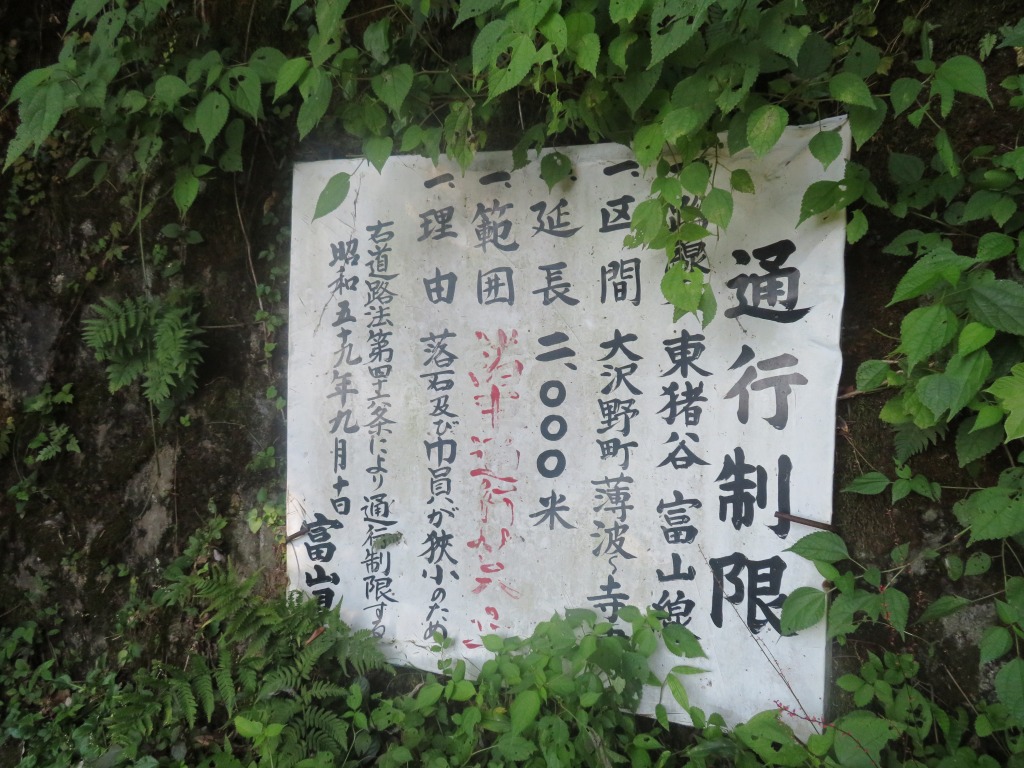 通行制限
路線 東猪谷 富山線
一、区間 大沢野町薄波～寺
延長 二、〇〇〇米
一、範囲 諸車通行禁止
一、理由 落石及び巾員が狭小のため
右道路法第四六条により通行制限する
昭和五十九年九月十日 富山県